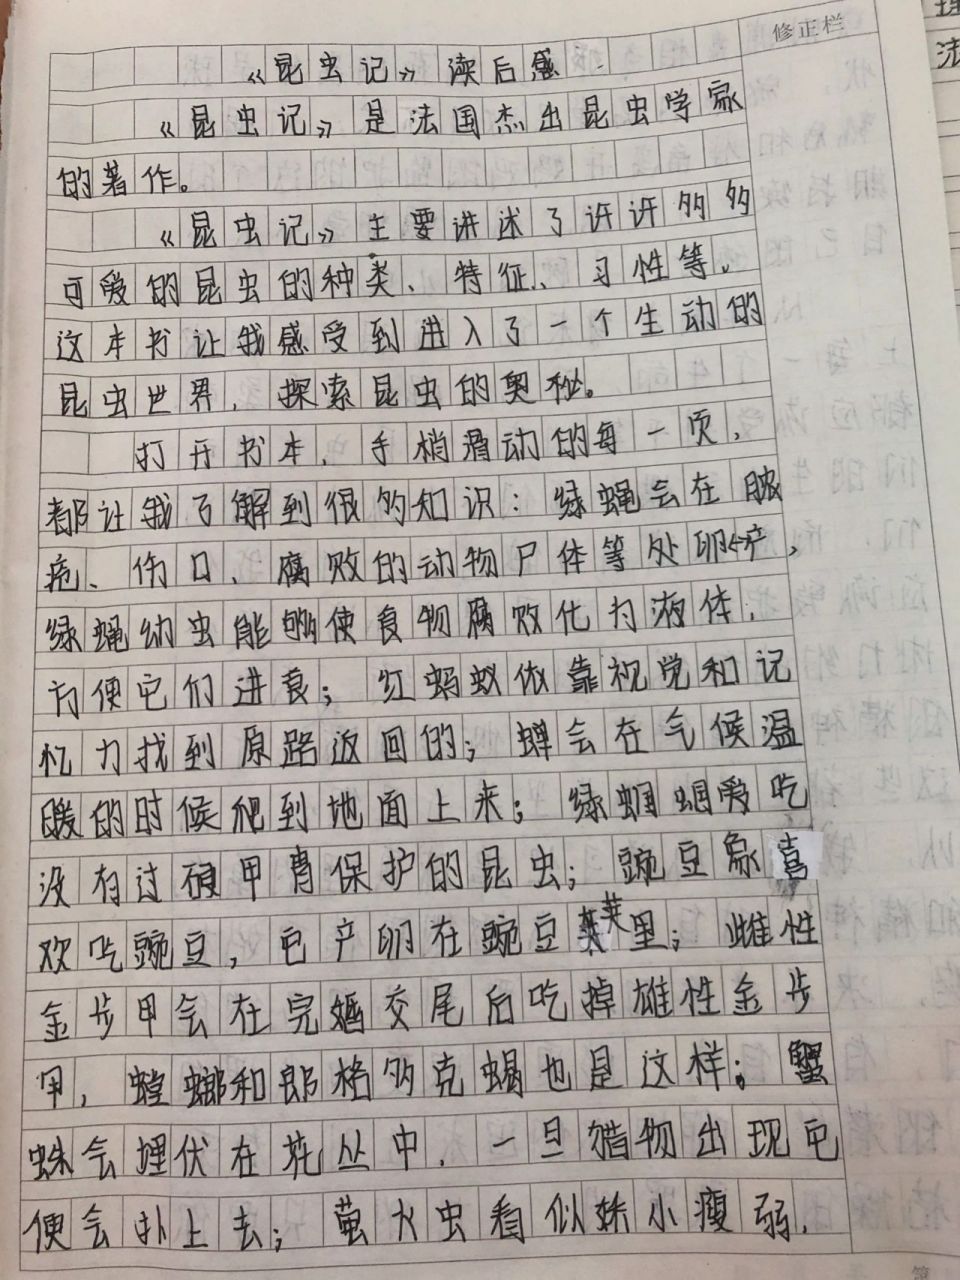 修正栏
《昆虫记》读后感
《昆虫记》是法国杰出昆虫学家
的著作。
《昆虫记》主要讲述了许许多多
可爱的昆虫的种类、特征、习性等。
这本书让我感受到进入了一个生动的
昆虫世界，探索昆虫的奥秘。
打开书本，手梢滑动的每一页，
都让我了解到很多知识：绿蝇会在脓
疮、伤口、腐败的动物尸体等处卵产，
绿蝇幼虫能够使食物腐败化为液体，
方便它们进食；红蚂蚁依靠视觉和记
忆力找到原路返回的；蝉会在气候温
暖的时候爬到地面上来；绿蝈蝈爱吃
没有过硬甲胄保护的昆虫；豌豆象喜
欢吃豌豆，它产卵在豌豆荚里；雌性
金步甲会在完婚交尾后吃掉雄性金步
甲，螳螂和郎格多克蝎也是这样；蟹
蛛会埋伏在花丛中，一旦猎物出现它
便会扑上去；萤火虫看似娇小瘦弱，